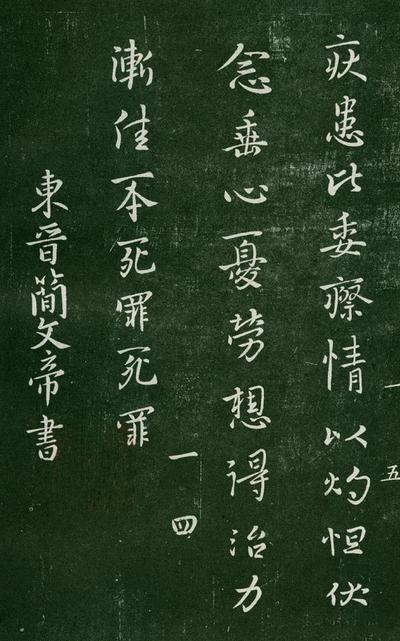 一五
疾患比委瘵情以灼怛伏
念垂心憂勞想得治力
一四
漸佳本死罪死罪
東晉簡文帝書